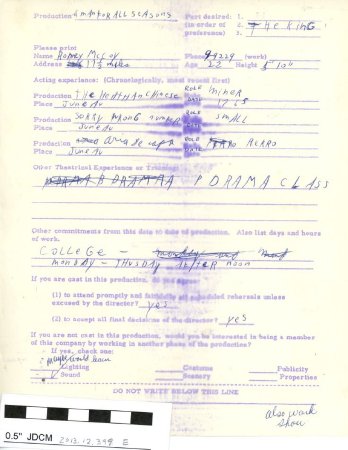 Production A MAN FOR ALL SEASONS Part desired: 1.
(in order of 2. THE KING
preference) 3.
Please print
Name Phone (work)
Address Age 22 Height 5'10"
Acting experience: (Chronologically, most recent first)
Production THE ROLE MINER
Place Juneau DATE
Production SORRY WRONG NUMBER ROLE SMALL
Place Juneau DATE
Production ROLE
Place Juneau DATE
Other Theatrical Experience or Training:
DRAMA CLASS
Other commitments from this date to date of production. Also list days and hours
of work.
COLLEGE -
MONDAY - AFTER NOON
If you are cast in this production, do you agree:
(1) to attend promptly and faithfully all scheduled rehearsals unless
excused by the director? yes
(2) to accept all final decisions of the director? yes
If you are not cast in this production, would you be interested in being a member
of this company by working in another phase of the production?
If yes, check one:
Lighting Costume Publicity
Sound Scenery Properties
DO NOT WRITE BELOW THIS LINE
also work
show
0.5" JDCM 2013.12.399 E